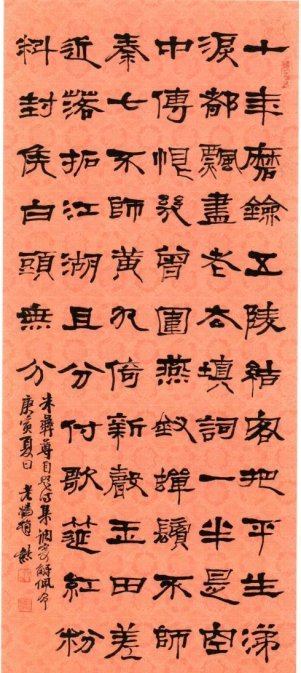 十年磨鐱五陵結客把平生涕
淚都飄盡老去填詞一半是空
中傳恨幾曾圍燕釵蟬鬢不師
秦七不師黃九倚新聲玉田差
近落拓江湖且分付歌筵紅粉
料封侯白頭無分
朱彝尊自題詞集調寄解佩令
庚寅夏日 老